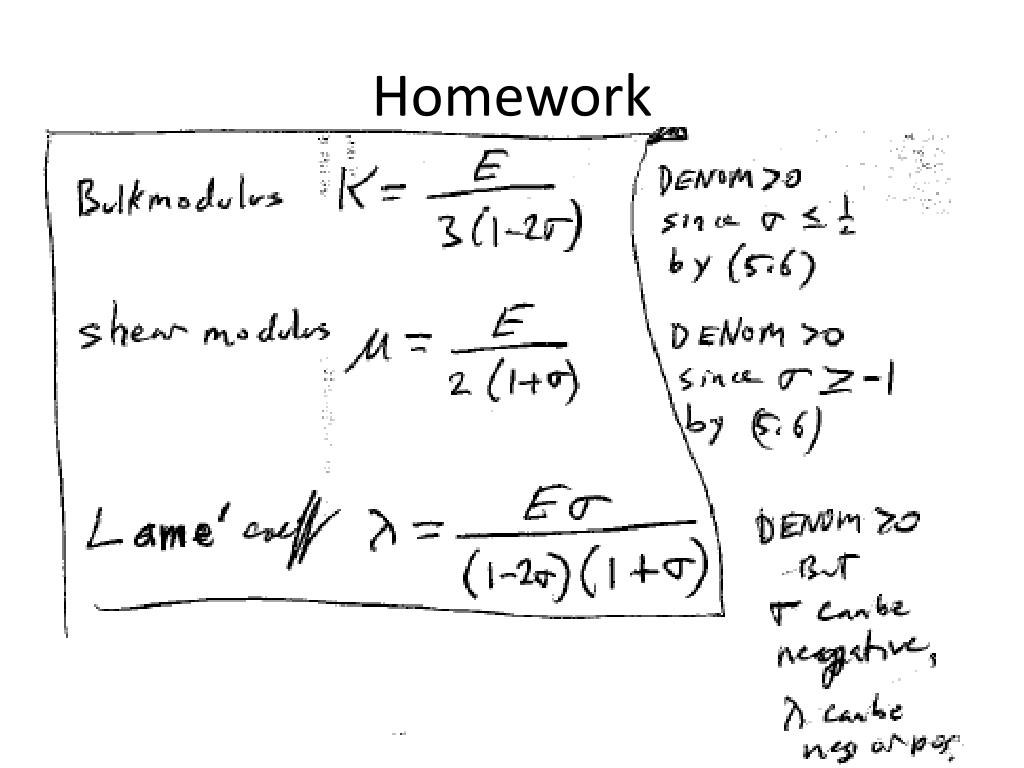 Homework
Bulk modulus K = E / 3(1-2σ)
DENOM > 0
since σ ≤ 1/2
by (5.6)
shear modulus μ = E / 2(1+σ)
DENOM > 0
since σ ≥ -1
by (5.6)
Lame' coeff λ = Eσ / (1-2σ)(1+σ)
DENOM > 0
But
σ can be
negative,
λ can be
neg or pos.